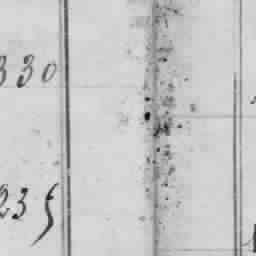 330
235